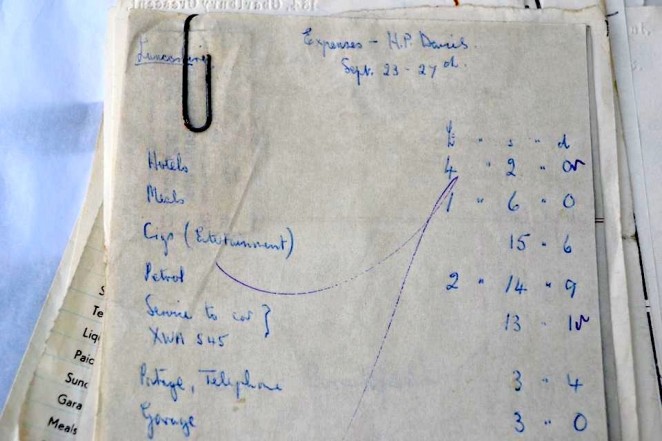 Expenses - H.P. Davis.
Sept. 23 - 27th.
£ " s " d
Hotels 4 " 2 " 0
Meals 1 " 6 " 0
Cigs (Entertainment) 15 " 6
Petrol 2 " 14 " 9
Service to car } 13 " 1
XWA 545
Postage, Telephone 3 " 4
Garage 3 " 0
S
Te
Liq
Paid
Sund
Gara
Meals